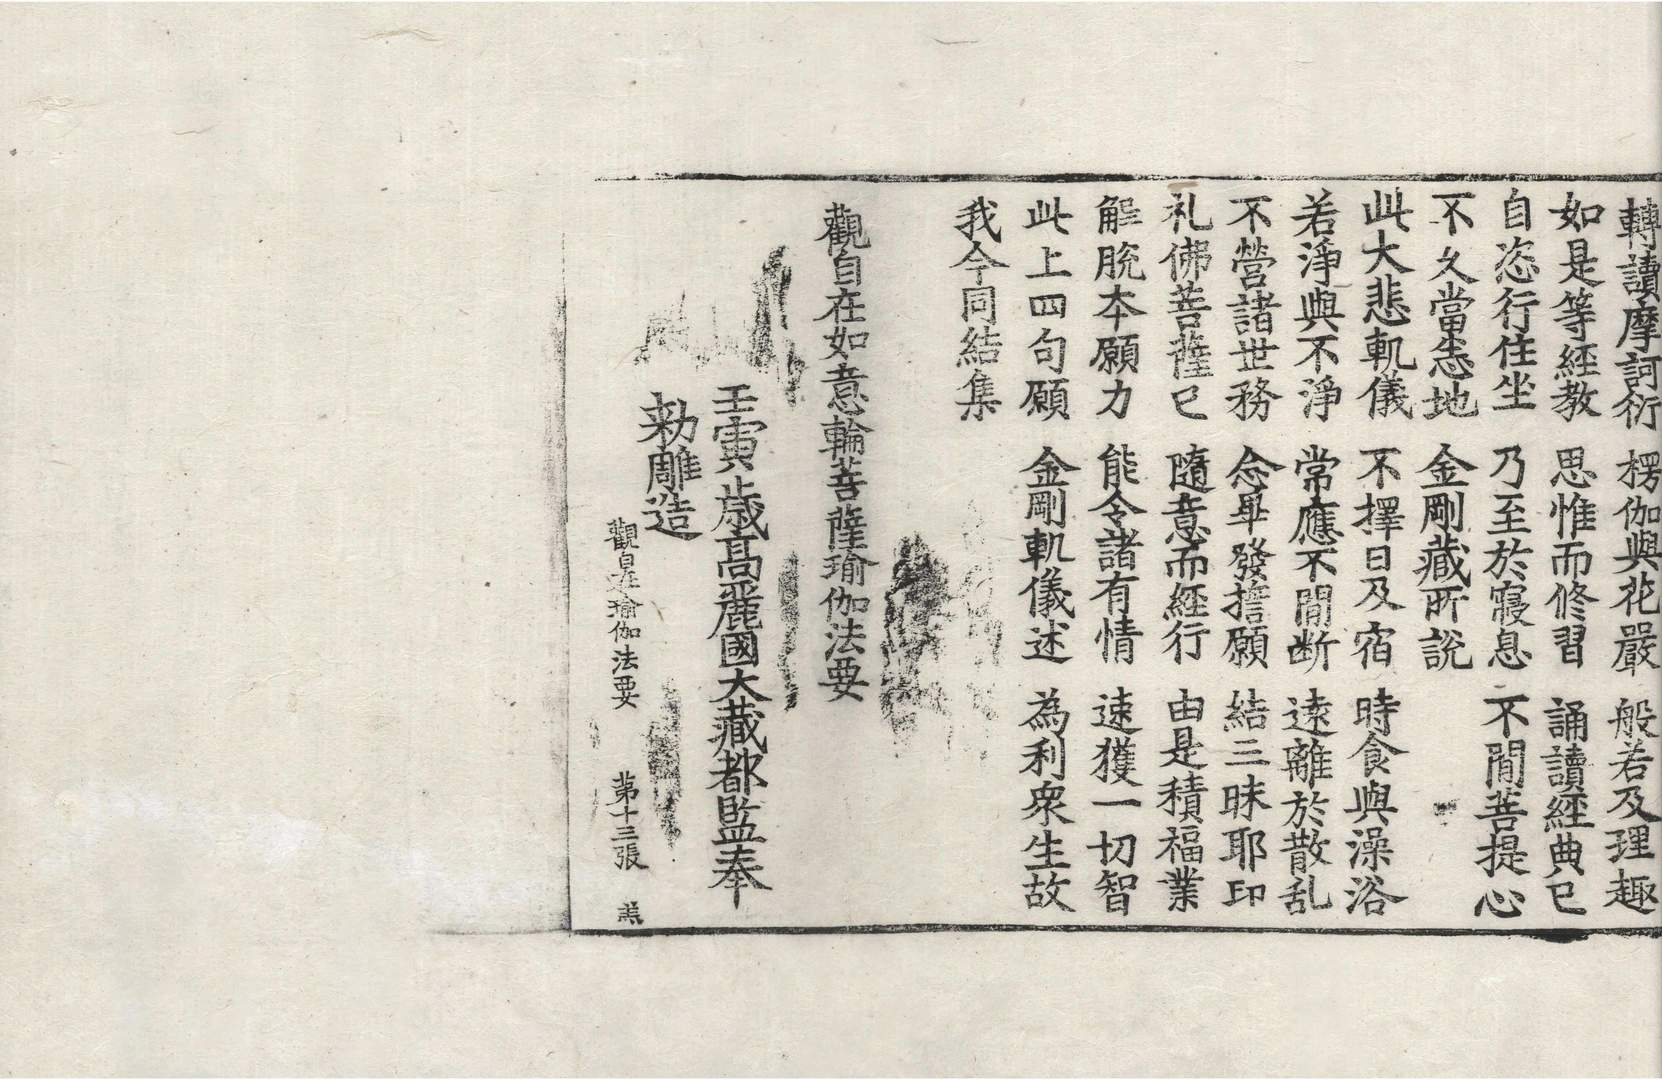 轉讀摩訶衍 楞伽與花嚴 般若及理趣
如是等經教 思惟而修習 誦讀經典已
自恣行住坐 乃至於寢息 不閒菩提心
不久當悉地 金剛藏所說
此大悲軌儀 不擇日及宿 時食與澡浴
若淨與不淨 常應不閒断 遠離於散乱
不營諸世務 念畢發誓願 結三昧耶印
礼佛菩薩已 隨意而經行 由是積福業
解脫本願力 能令諸有情 速獲一切智
此上四句願 金剛軌儀述 為利衆生故
我今同結集
觀自在如意輪菩薩瑜伽法要
壬寅歲高麗國大藏都監奉
勅雕造
觀自在瑜伽法要 第十三張 羔